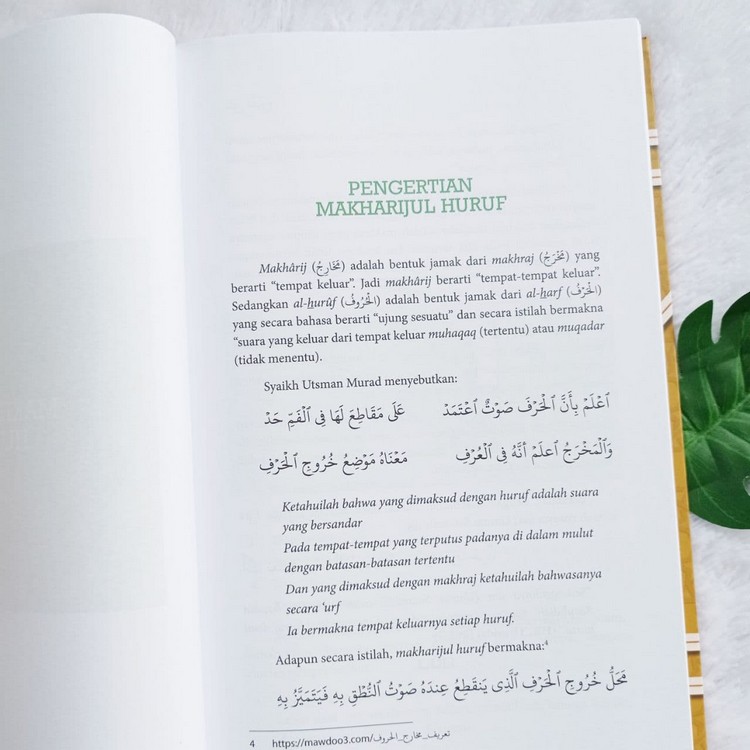 PENGERTIAN
MAKHARIJUL HURUF
Makhârij (مَخَارِجُ) adalah bentuk jamak dari makhraj (مَخْرَجُ) yang
berarti “tempat keluar”. Jadi makhârij berarti “tempat-tempat keluar”.
Sedangkan al-hurûf (الْحُرُوفُ) adalah bentuk jamak dari al-harf (الْحَرْفُ)
yang secara bahasa berarti “ujung sesuatu” dan secara istilah bermakna
“suara yang keluar dari tempat keluar muhaqaq (tertentu) atau muqadar
(tidak menentu).
Syaikh Utsman Murad menyebutkan:
ٱعْلَمْ بِأَنَّ ٱلْحَرْفَ صَوْتٌ ٱعْتَمَدْ عَلَى مَقَاطِعَ لَهَا فِى ٱلْفَمِّ حَدْ
وَٱلْمَخْرَجُ ٱعلَمْ أنَّهُ فِى ٱلْعُرْفِ مَعْنَاهُ مَوْضِعُ خُرُوجِ ٱلْحَرْفِ
Ketahuilah bahwa yang dimaksud dengan huruf adalah suara
yang bersandar
Pada tempat-tempat yang terputus padanya di dalam mulut
dengan batasan-batasan tertentu
Dan yang dimaksud dengan makhraj ketahuilah bahwasanya
secara ‘urf
Ia bermakna tempat keluarnya setiap huruf.
Adapun secara istilah, makharijul huruf bermakna:⁴
مَحَلُّ خُرُوجِ ٱلْحَرْفِ ٱلَّذِى يَنقَطِعُ عِندَهُ صَوْتُ ٱلنُّطْقِ بِهِ فَيَتَمَيَّزُ بِهِ
4 https://mawdoo3.com/تعريف_مخارج_الحروف